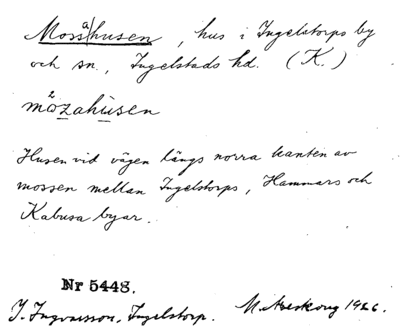 Mossahusen, hus i Ingelstorps by
och sn., Ingelstads hd. (K.)
mòzahusen
Husen vid vägen längs norra kanten av
mossen mellan Ingelstorps, Hammars och
Kabusa byar.
Nr 5448.
I. Ingvarsson, Ingelstorp. M. Areskoug 1926.